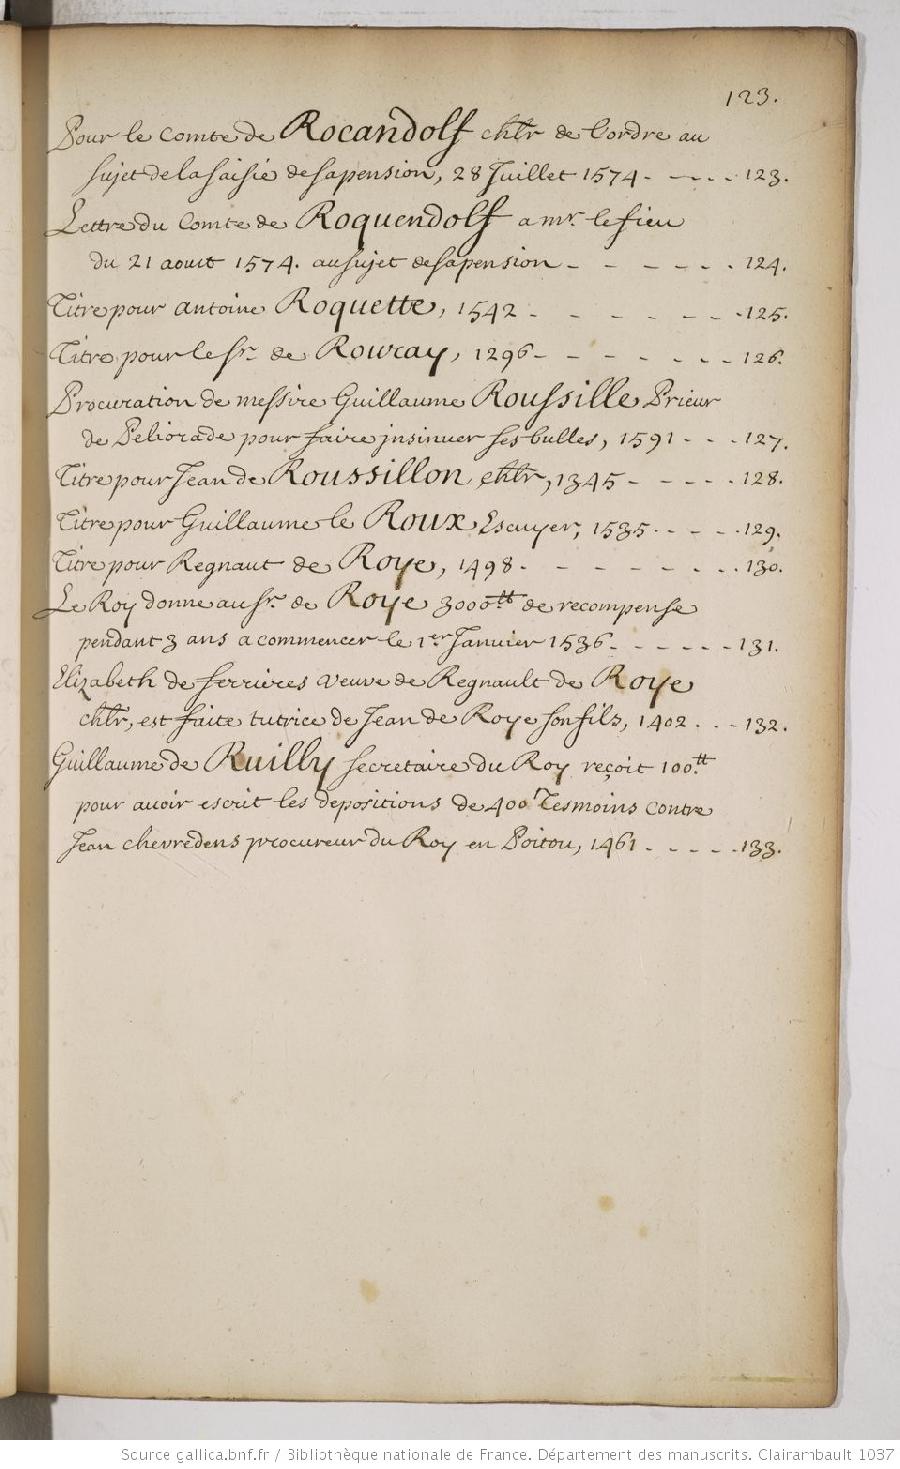 123.
Pour le Comte de Rocandolf chlr de l'ordre au
sujet de la saisie de sa pension, 28 Juillet 1574 - - - - 123.
Lettre du Comte de Roquendolf a mr. le fieu
du 21 aoust 1574. au sujet de sa pension - - - - - - 124.
Titre pour antoine Roquette, 1542 - - - - - - 125.
Titre pour le Sr. de Rouvray, 1296 - - - - - - - 126.
Procuration de messire Guillaume Roussille Prieur
de Peliorade pour faire insinuer ses bulles, 1591 - - - 127.
Titre pour Jean de Roussillon chlr, 1345 - - - - - 128.
Titre pour Guillaume le Roux Escuyer, 1535 - - - - - 129.
Titre pour Regnaut de Roye, 1498 - - - - - - - - 130.
Le Roy donne au Sr. de Roye 3000tt de recompense
pendant 3 ans a commencer le 1er Janvier 1536 - - - - - - - 131.
Elizabeth de ferrieres veuve de Regnault de Roye
chlr, est faite tutrice de Jean de Roye son fils, 1402 - - - 132.
Guillaume de Ruilly secretaire du Roy reçoit 100.tt
pour avoir escrit les depositions de 400 Tesmoins contre
Jean chevredens procureur du Roy en Poitou, 1461 - - - - - - 133.
Source gallica.bnf.fr / Bibliothèque nationale de France. Département des manuscrits. Clairambault 1037